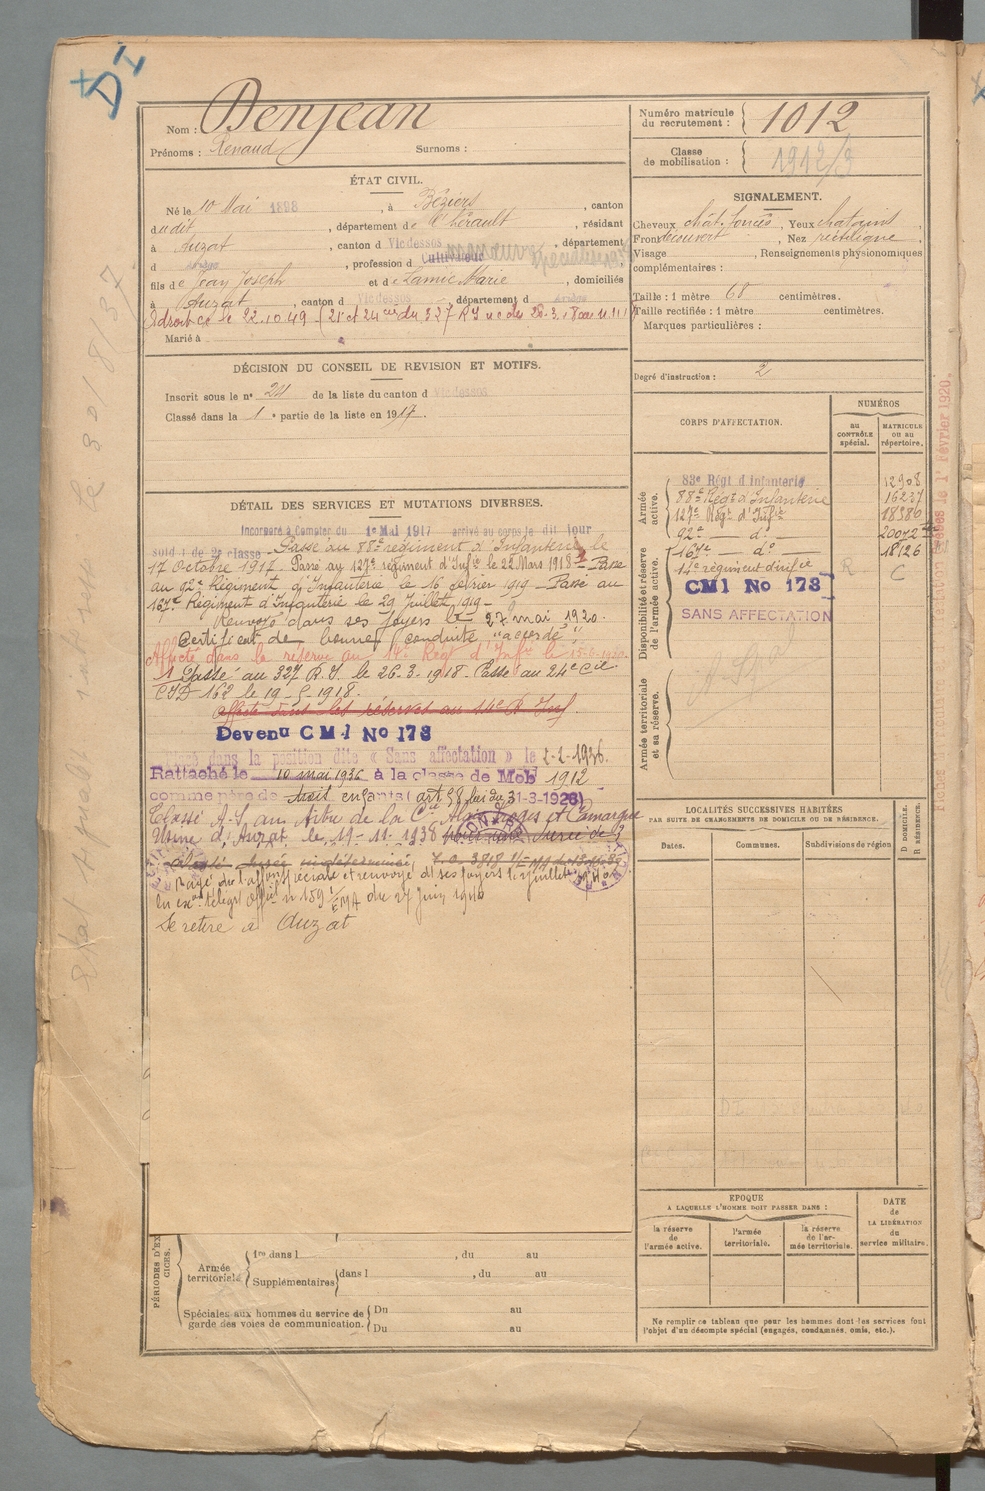 Nom : Denjean
Prénoms : Renaud Surnoms :
Numéro matricule du recrutement : 1012
Classe de mobilisation : 1912/3
ÉTAT CIVIL.
Né le 10 Mai 1898, à Béziers, canton
dudit, département de l'Hérault, résidant
à Auzat, canton d Vicdessos, département
d Ariège, profession d Cultivateur
fils de Jean Joseph et de Lamic Marie, domiciliés
à Auzat, canton d Vicdessos, département d Ariège
le 22.10.49 (21e et 24 cie du 327 RI
Marié à
DÉCISION DU CONSEIL DE REVISION ET MOTIFS.
Inscrit sous le n° 24 de la liste du canton d Vicdessos
Classé dans la 1e partie de la liste en 1917.
DÉTAIL DES SERVICES ET MUTATIONS DIVERSES.
Incorporé à compter du 1er Mai 1917 arrivé au corps le dit jour
sold t de 2e classe - Passé au 88e régiment d'Infanterie le
17 Octobre 1917. Passé au 127e régiment d'Infie le 22 Mars 1918 - Passé
au 92e Régiment d'Infanterie le 16 février 1919 - Passé au
167e Régiment d'Infanterie le 29 Juillet 1919 -
Renvoyé dans ses foyers le 27 mai 1920.
Certificat de bonne conduite "accordé".
Affecté dans la réserve au 14e Rég d'Infie le
Passé au 327 R.I. le 26-3-1918. Passé au 24e Cie
CID 162 le 19-5-1918.
affecté dans les réserves au 14e R. Inf.
Devenu CM1 No 173
dans la position dite « Sans affectation » le
Rattaché le 10 mai 1936 à la classe de Mob 1912
comme père de trois enfants (art 58 loi du 31-3-1928)
Classé A.S. au titre de la Cie Alais Froges et Camargue
Usine d'Auzat le 19-11-1938
durée indéterminée,
Rayé de l'affon spéciale et renvoyé ds ses foyers le juillet
en exon télégr Offel n° 159 1/EMA du 27 Juin 1940
Se retire à Auzat
Armée territoriale
1re dans l , du au
Supplémentaires dans l , du au
Spéciales aux hommes du service de garde des voies de communication. Du au
Du au
SIGNALEMENT.
Cheveux chât. foncés, Yeux chatains
Front découvert, Nez rectiligne
Visage , Renseignements physionomiques
complémentaires :
Taille : 1 mètre 68 centimètres.
Taille rectifiée : 1 mètre centimètres.
Marques particulières :
Degré d'instruction : 2
CORPS D'AFFECTATION.
NUMÉROS
au CONTRÔLE spécial.
MATRICULE ou au répertoire.
Armée active.
83e Régt d'Infanterie 12908
88e Régt d'Infanterie 16237
127e Régt d'Infie 18386
92e - do - 20072
Disponibilité et réserve de l'armée active.
167e - do - 18126
14e régiment d'infie R C
CM1 No 173
SANS AFFECTATION
Armée territoriale et sa réserve.
LOCALITÉS SUCCESSIVES HABITÉES
PAR SUITE DE CHANGEMENTS DE DOMICILE OU DE RÉSIDENCE.
D DOMICILE.
R RÉSIDENCE.
Dates. Communes. Subdivisions de région
EPOQUE
A LAQUELLE L'HOMME DOIT PASSER DANS :
la réserve de l'armée active.
l'armée territoriale.
la réserve de l'armée territoriale.
DATE de LA LIBÉRATION du service militaire.
Ne remplir ce tableau que pour les hommes dont les services font
l'objet d'un décompte spécial (engagés, condamnés, omis, etc.).